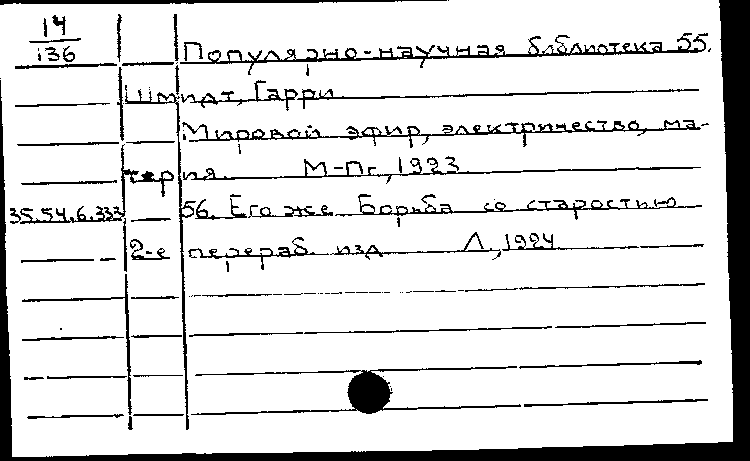 14
136
Популярно-научная библиотека 55.
Шмидт, Гарри
Мировой эфир, электричество, ма-
терия. М-Пг., 1923
35.54.6.333 56. Его же Борьба со старостью
2-е перераб. изд Л., 1924